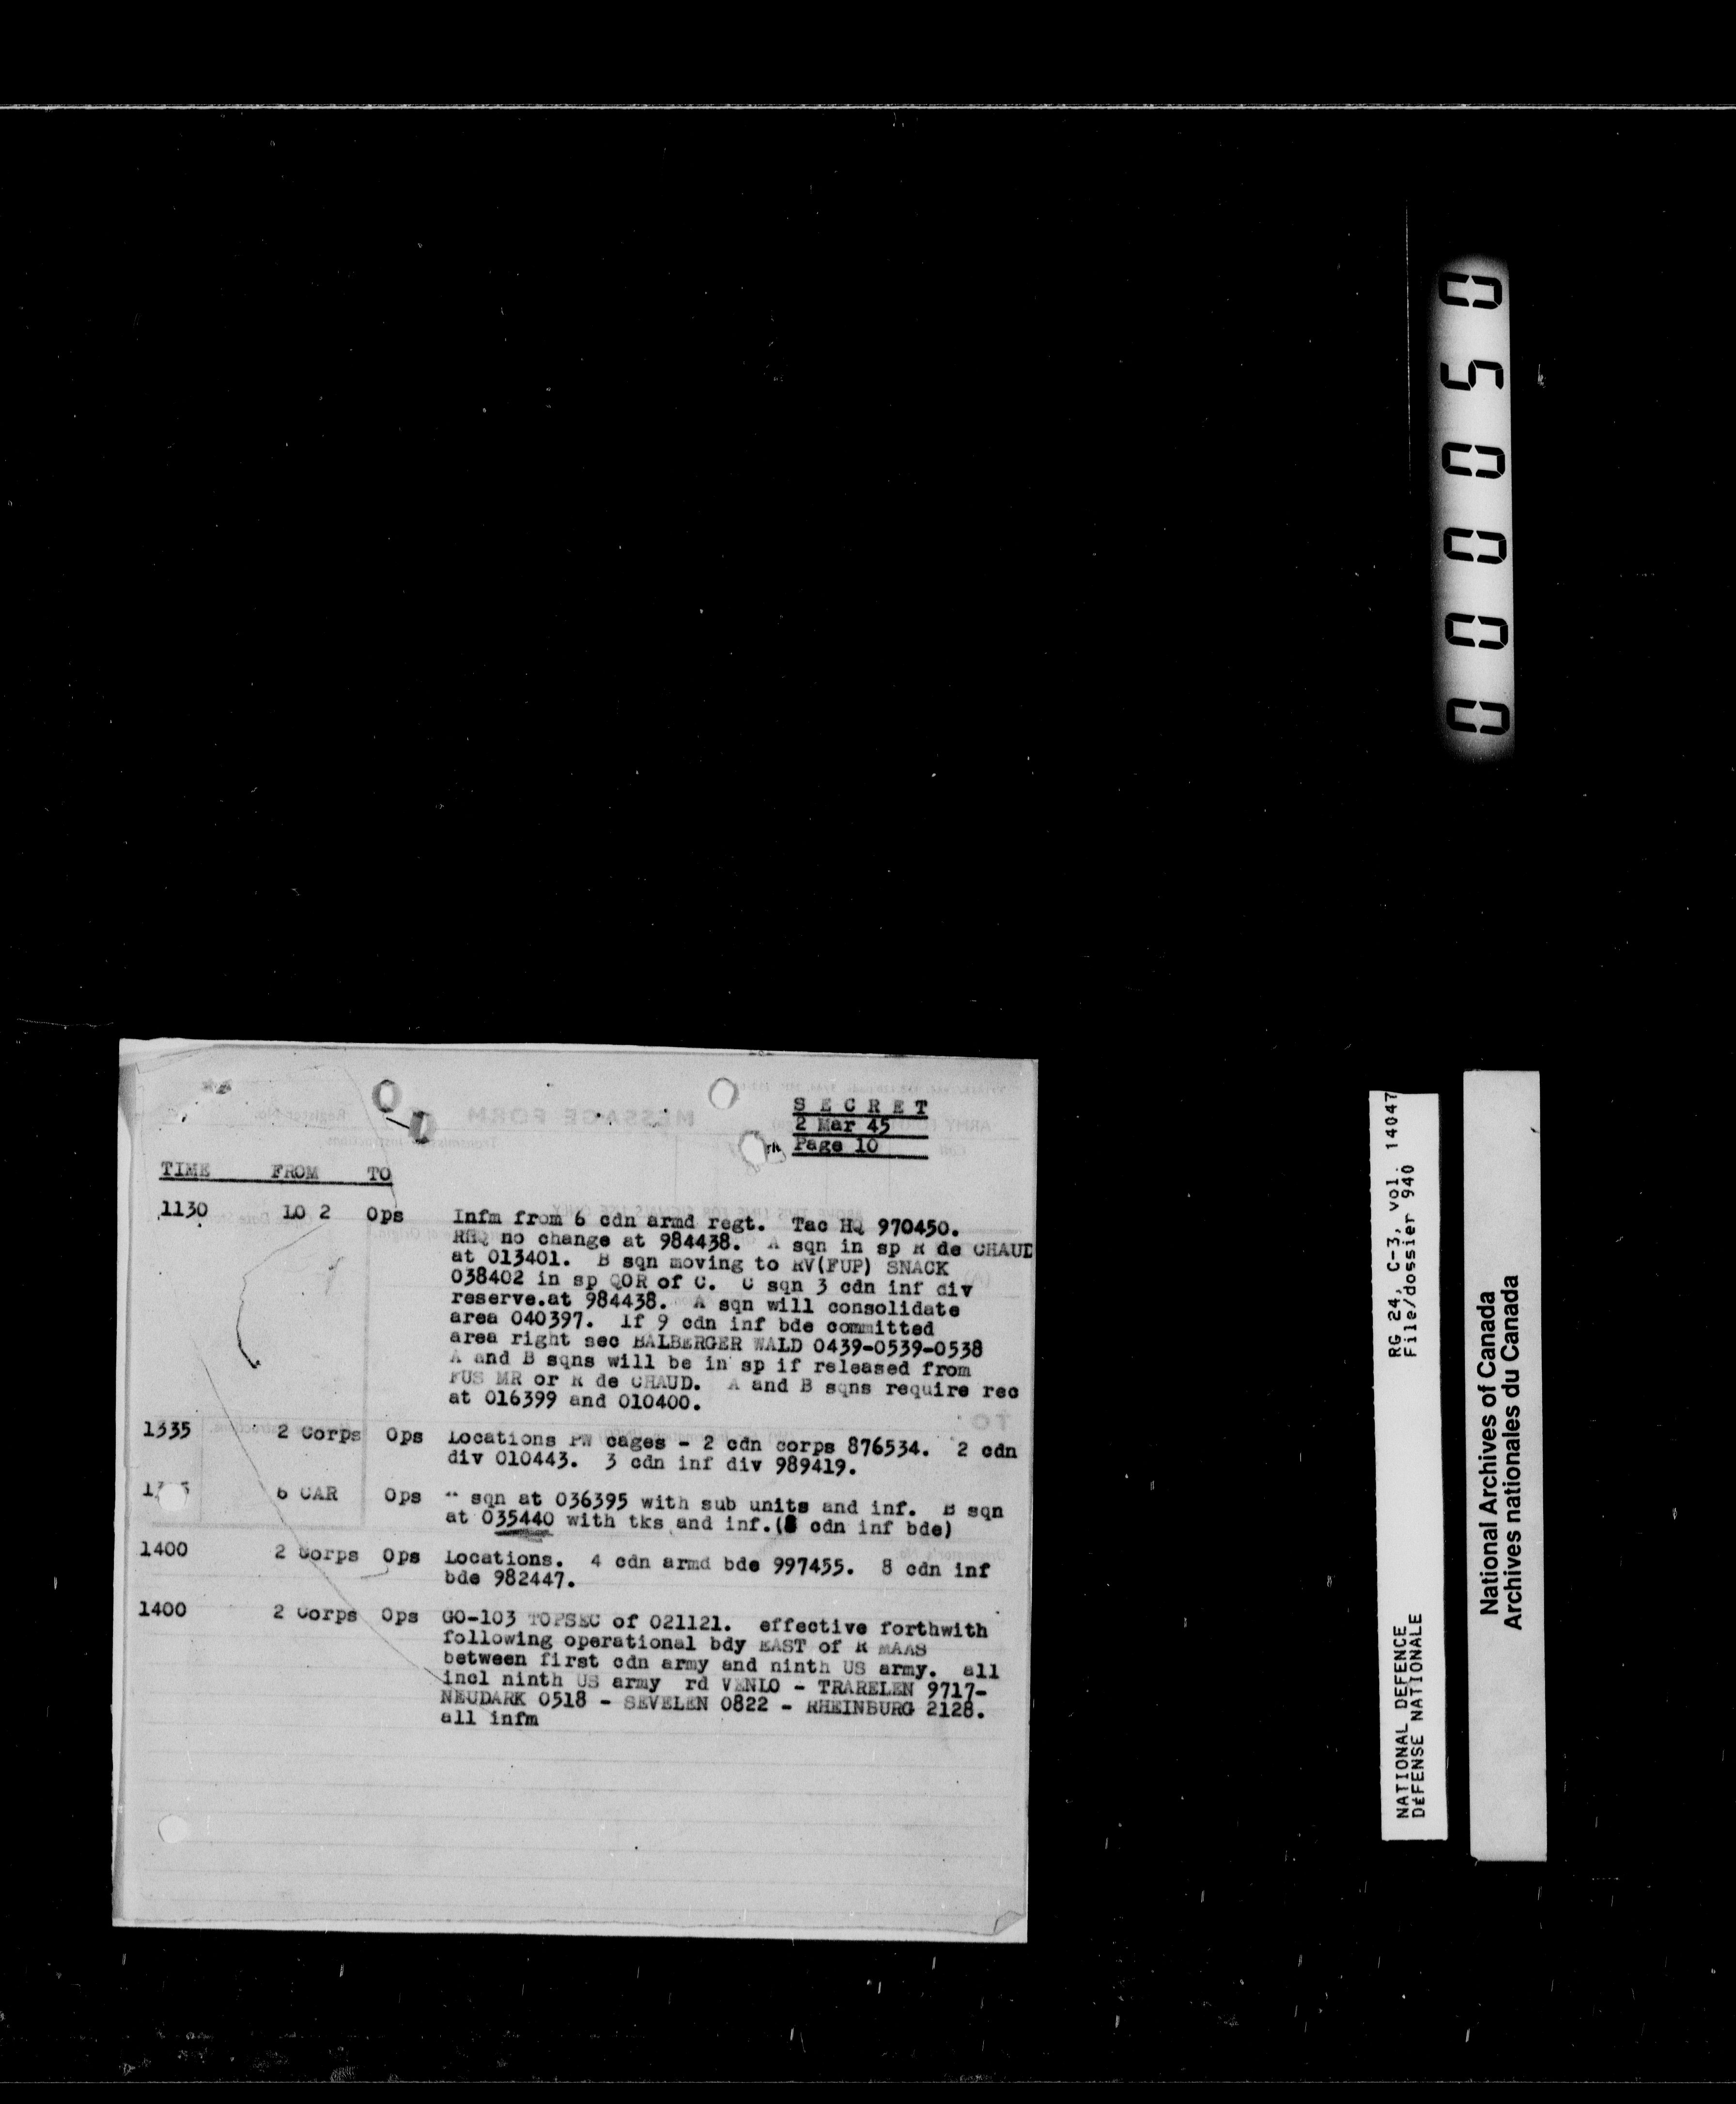 S E C R E T
2 Mar 45
Page 10
TIME FROM TO
1130 LO 2 Ops Infm from 6 cdn armd regt. Tac HQ 970450.
RHQ no change at 984438. A sqn in sp R de CHAUD
at 013401. B sqn moving to RV(FUP) SNACK
038402 in sp QOR of C. C sqn 3 cdn inf div
reserve.at 984438. A sqn will consolidate
area 040397. If 9 cdn inf bde committed
area right sec BALBERGER WALD 0439-0539-0538
A and B sqns will be in sp if released from
FUS MR or R de CHAUD. A and B sqns require rec
at 016399 and 010400.
1335 2 Corps Ops Locations PW cages - 2 cdn corps 876534. 2 cdn
div 010443. 3 cdn inf div 989419.
6 CAR Ops sqn at 036395 with sub units and inf. B sqn
at 035440 with tks and inf.(8 cdn inf bde)
1400 2 Corps Ops Locations. 4 cdn armd bde 997455. 8 cdn inf
bde 982447.
1400 2 Corps Ops GO-103 TOPSEC of 021121. effective forthwith
following operational bdy EAST of R MAAS
between first cdn army and ninth US army. all
incl ninth US army rd VENLO - TRARELEN 9717-
NEUDARK 0518 - SEVELEN 0822 - RHEINBURG 2128.
all infm
MESSAGE FORM
000050
NATIONAL DEFENCE RG 24, C-3, vol. 14047
DÉFENSE NATIONALE File/dossier 940
National Archives of Canada
Archives nationales du Canada